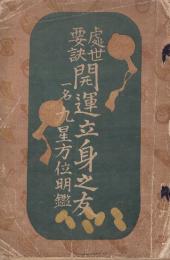 處世要訣
開運立身之友
一名九星方位明鑑